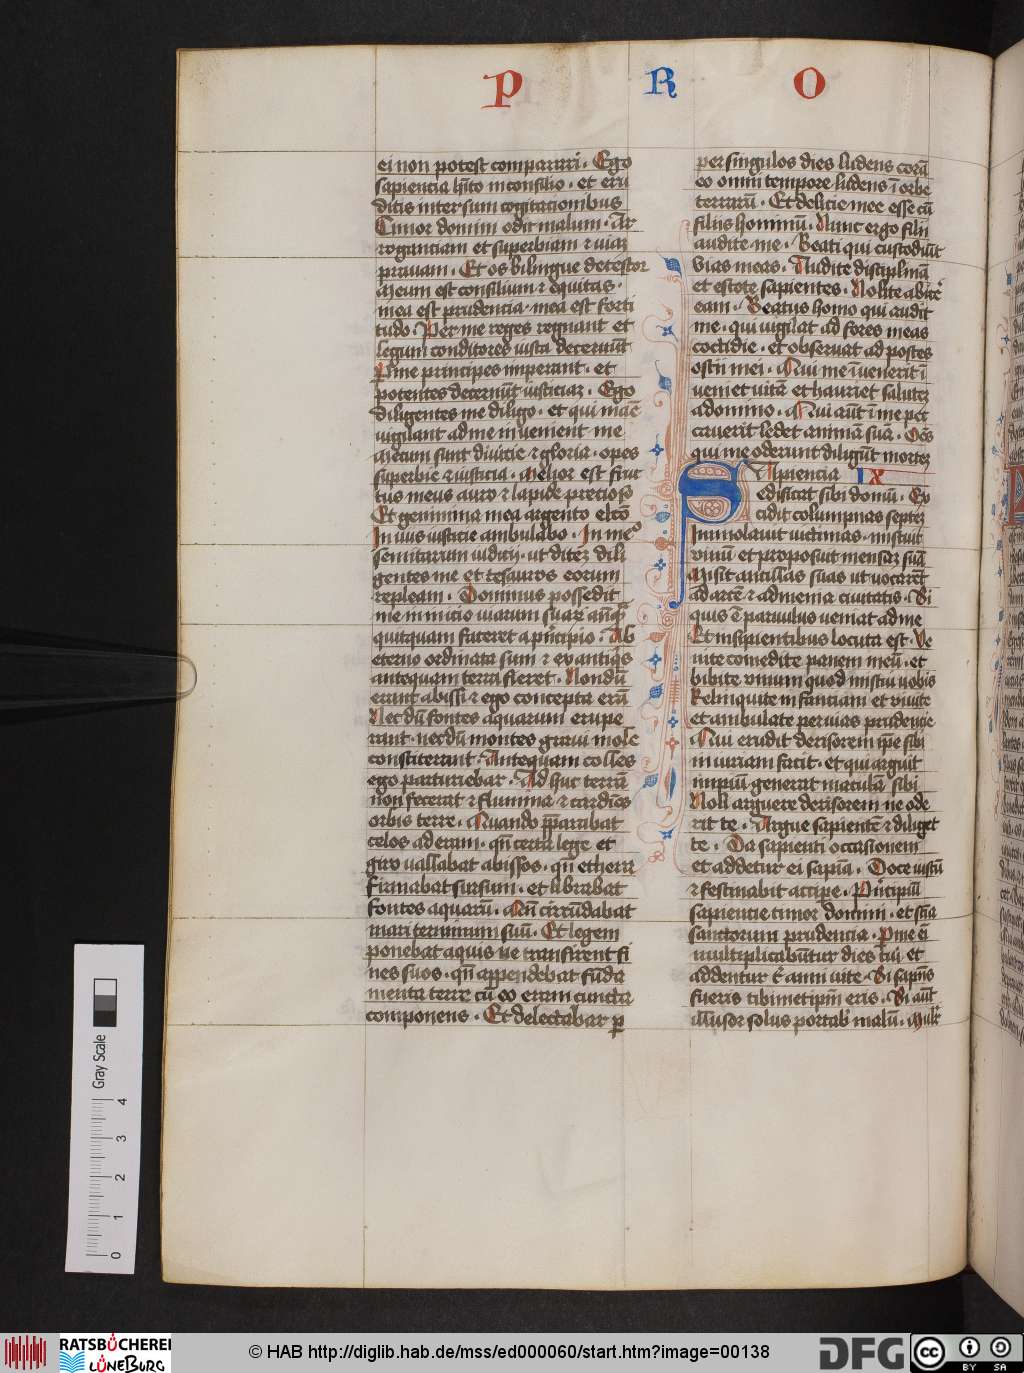 P R O
ei non potest comparari . Ego
sapientia hīto in consilio . et eru
ditis intersum cogitacionibus
Timor domini odit malum . Ar
rogantiam et superbiam ⁊ viaꝫ
pravam . Et os bilingue detestor
Meum est consilium ⁊ equitas .
mea est prudencia . mea est forti
tudo . Per me reges regnant et
legum conditores iusta decernūt
Ꝑ me principes imperant . et
potentes decernūt iusticiaꝫ . Ego
diligentes me diligo . et qui mane
vigilant ad me invenient me
Mecum sunt divicie ⁊ gloria . opes
superbie ⁊ iusticia . Melior est fruc
tus meus auro ⁊ lapide precioso
Et gemmina mea argento elcō
In viis iusticie ambulabo . In me°
semitarum iudicij . ut diteꝫ dili
gentes me et tesauros eorum
repleam . Dominus possedit
me in inicio viarum suaꝝ anq̄ꝫ
quitquam faceret a pncipio . Ab
eterno ordinata sum ⁊ ex antiqis
antequam terra fieret . Nondū
erant abissi ⁊ ego concepta erā
Necdū fontes aquarum erupe
rant . necdū montes gravi mole
constiterant . Antequam colles
ego parturiebar . Adhuc terrā
non fecerat ⁊ flumina ⁊ cardines
orbis terre . Quando p̄parabat
celos aderam . qn̄ certa lege et
giro vallabat abissos . qn̄ ethera
firmabat sursum . et librabat
fontes aquarū . Qn̄ circūdabat
mari terminum suū . Et legem
ponebat aquis ne transirent fi
nes suos . qn̄ appendebat fūda
menta terre cū eo eram cuncta
componens . Et delectabar ꝑ
per singulos dies ludens corā
eo omni tempore ludens ī orbe
terrarū . Et delicie mee esse cū
filiis hominū . Nunc ergo filii
audite me . Beati qui custodiūt
vias meas . Audite disciplinā
et estote sapientes . Nolite abicē
eam . Beatus homo qui audit
me . qui vigilat ad fores meas
coctidie . et observat ad postes
ostii mei . Qui me īvenerit ī
veniet vitā et hauriet saluteꝫ
a domino . Qui aūt ī me pec
caverit ledet animā suā . Oēs
qui me oderunt diligūt morteꝫ
Sapiencia IX
edificat sibi domū . Ex
cidit columpnas septeꝫ
Immolavit victimas . miscuit
vinū et proposuit mensaꝫ suā
Misit ancillas suas ut vocarēt
ad arcē ⁊ ad menia civitatis . Si
quis ē parvulus veniat ad me
Et insipientibus locuta est . Ve
nite comedite panem meū . et
bibite vinum quod miscui vobis
Relinquite infanciam et vivite
et ambulate per vias prudencie
Qui erudit derisorem ip̄e sibi
iniuriam facit . et qui arguit
impiū generat maculā sibi
Noli arguere derisorem ne ode
rit te . Argue sapientē ⁊ diliget
te . Da sapienti occasionem
et addetur ei sapīa . Doce iustū
⁊ festinabit accipe . Pncipiū
sapientie timor domini . et scīa
sanctorum prudencia . Ꝑ me ē
multiplicabūtur dies tui et
addentur t̄ anni vite . Si sapīes
fueris tibimetipī eris . Si aūt
illusor solus portab̄ malū . Mulr̄
Gray Scale
0 1 2 3 4
RATSBÜCHEREI
LÜNEBURG
© HAB http://diglib.hab.de/mss/ed000060/start.htm?image=00138
DFG
cc BY SA